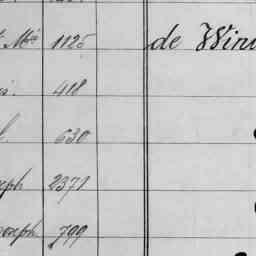 Mce 1125 de Win
418
l. 630
eph 2371
oseph 799